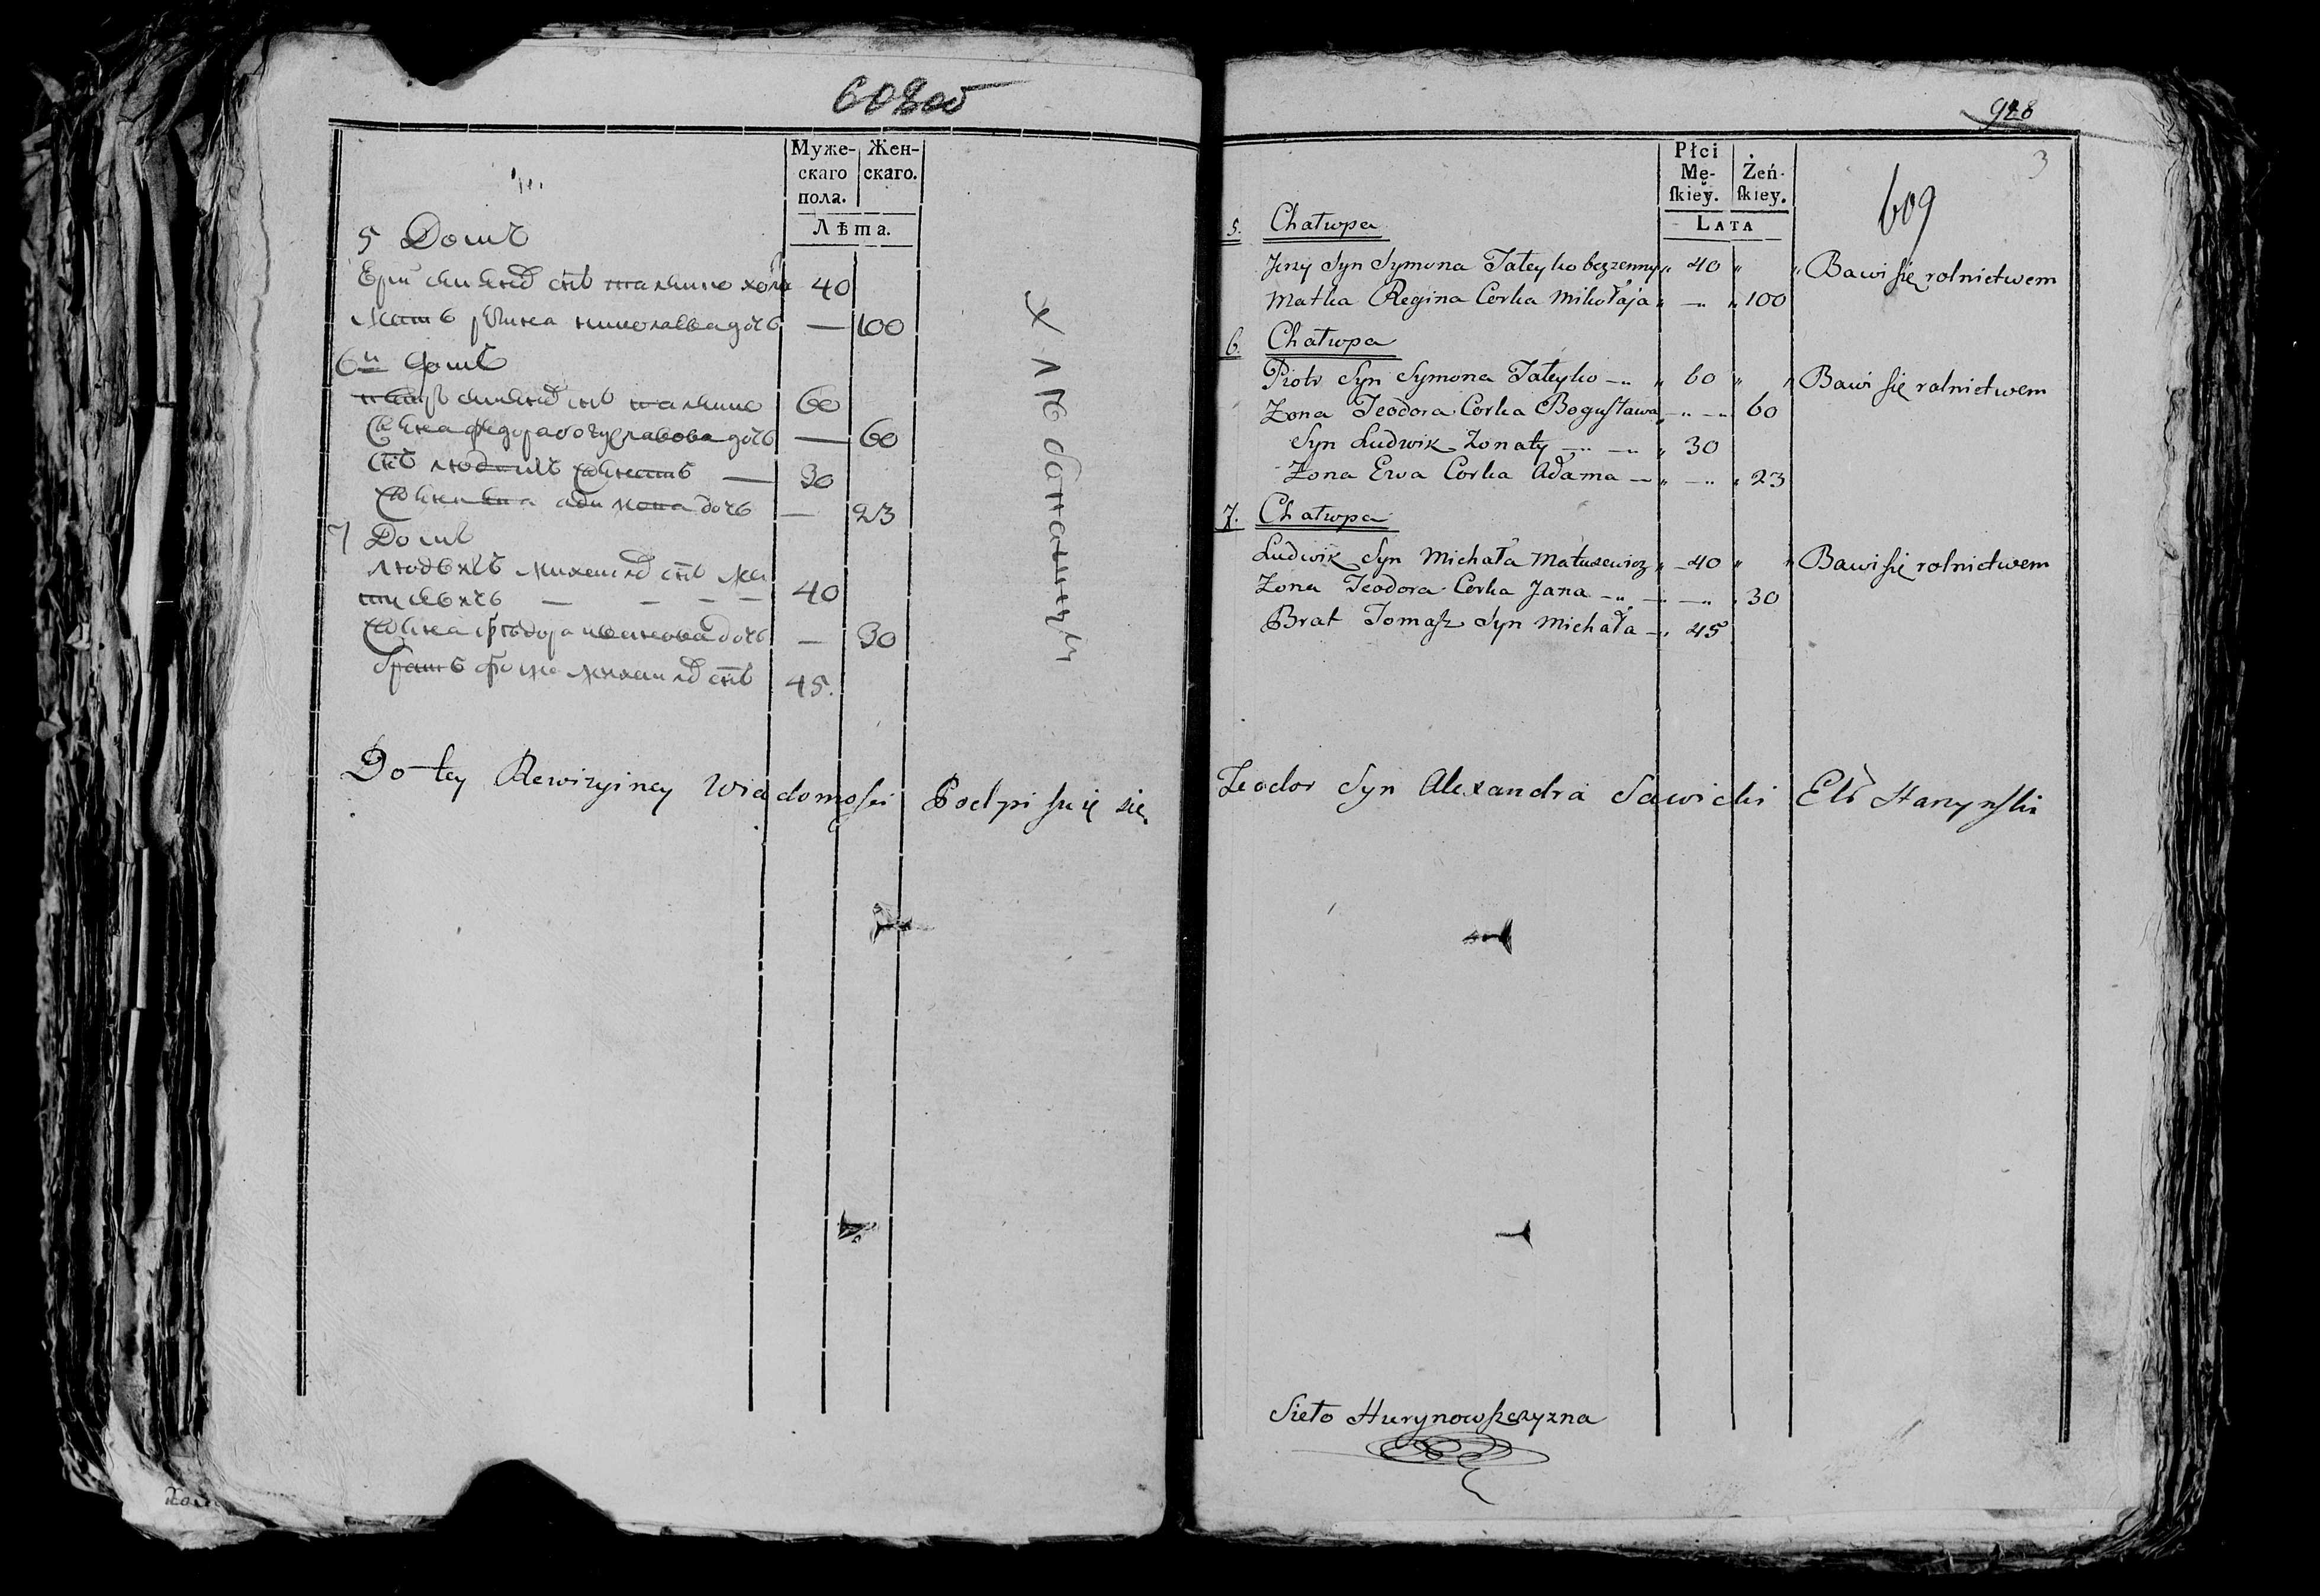 608 об
Муже-
скаго
пола.
Жен-
скаго.
Лѣта.
5 Домъ
40
Мать Регина николаева дочь — 100
6й домъ
60
жена федора богуславова дочь — 60
сынъ людвикъ женатъ — 30
жена ева адамова дочь — 23
7 Домъ
людвихъ михаила сынъ ма
тусевичь — — — — 40
жена феодора иванова дочь — 30
братъ фома михаила сынъ 45.
хлѣбопашцы
Do tey Rewizyiney Wiadomości Podpisuię się
928
3
609
Płci
Mę-
skiey.
Żeń-
skiey.
LATA
5. Chałupa
Jerzy Syn Symona Tateyko bezzenny „ 40 „ „ Bawi się rolnictwem
Matka Regina Corka Mikołaja „ — „ 100
6. Chałupa
Piotr Syn Symona Tateyko — „ 60 „ „ Bawi się rolnictwem
Zona Teodora Corka Bogusława „ — „ — 60
Syn Ludwik Zonaty — „ — „ 30
Zona Ewa Corka Adama — „ — „ 23
7. Chałupa
Ludwik Syn Michała Matusewicz „ 40 „ „ Bawi się rolnictwem
Zona Teodora Corka Jana — „ — „ 30
Brat Tomasz Syn Michała — „ 45
Teodor Syn Alexandra Sawicki
Sieło Hurynowszczyzna